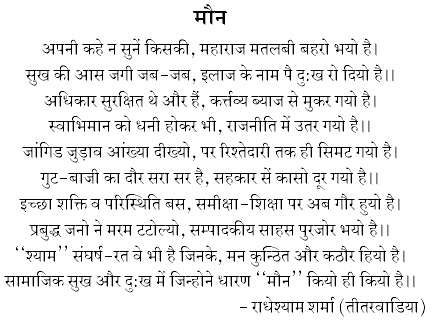 मौन
अपनी कहे न सुनें किसकी, महाराज मतलबी बहरो भयो है।
सुख की आस जगी जब-जब, इलाज के नाम पै दु:ख रो दियो है।।
अधिकार सुरक्षित थे और हैं, कर्त्तव्य ब्याज से मुकर गयो है।
स्वाभिमान को धनी होकर भी, राजनीति में उतर गयो है।।
जांगिड जुड़ाव आंख्या दीख्यो, पर रिश्तेदारी तक ही सिमट गयो है।
गुट-बाजी का दौर सरा सर है, सहकार सें कासो दूर गयो है।।
इच्छा शक्ति व परिस्थिति बस, समीक्षा-शिक्षा पर अब गौर हुयो है।
प्रबुद्ध जनो ने मरम टटोल्यो, सम्पादकीय साहस पुरजोर भयो है।।
‘‘श्याम’’ संघर्ष-रत वे भी है जिनके, मन कुन्ठित और कठौर हियो है।
सामाजिक सुख और दु:ख में जिन्होने धारण ‘‘मौन’’ कियो ही कियो है।।
- राधेश्याम शर्मा (तीतरवाडिया)